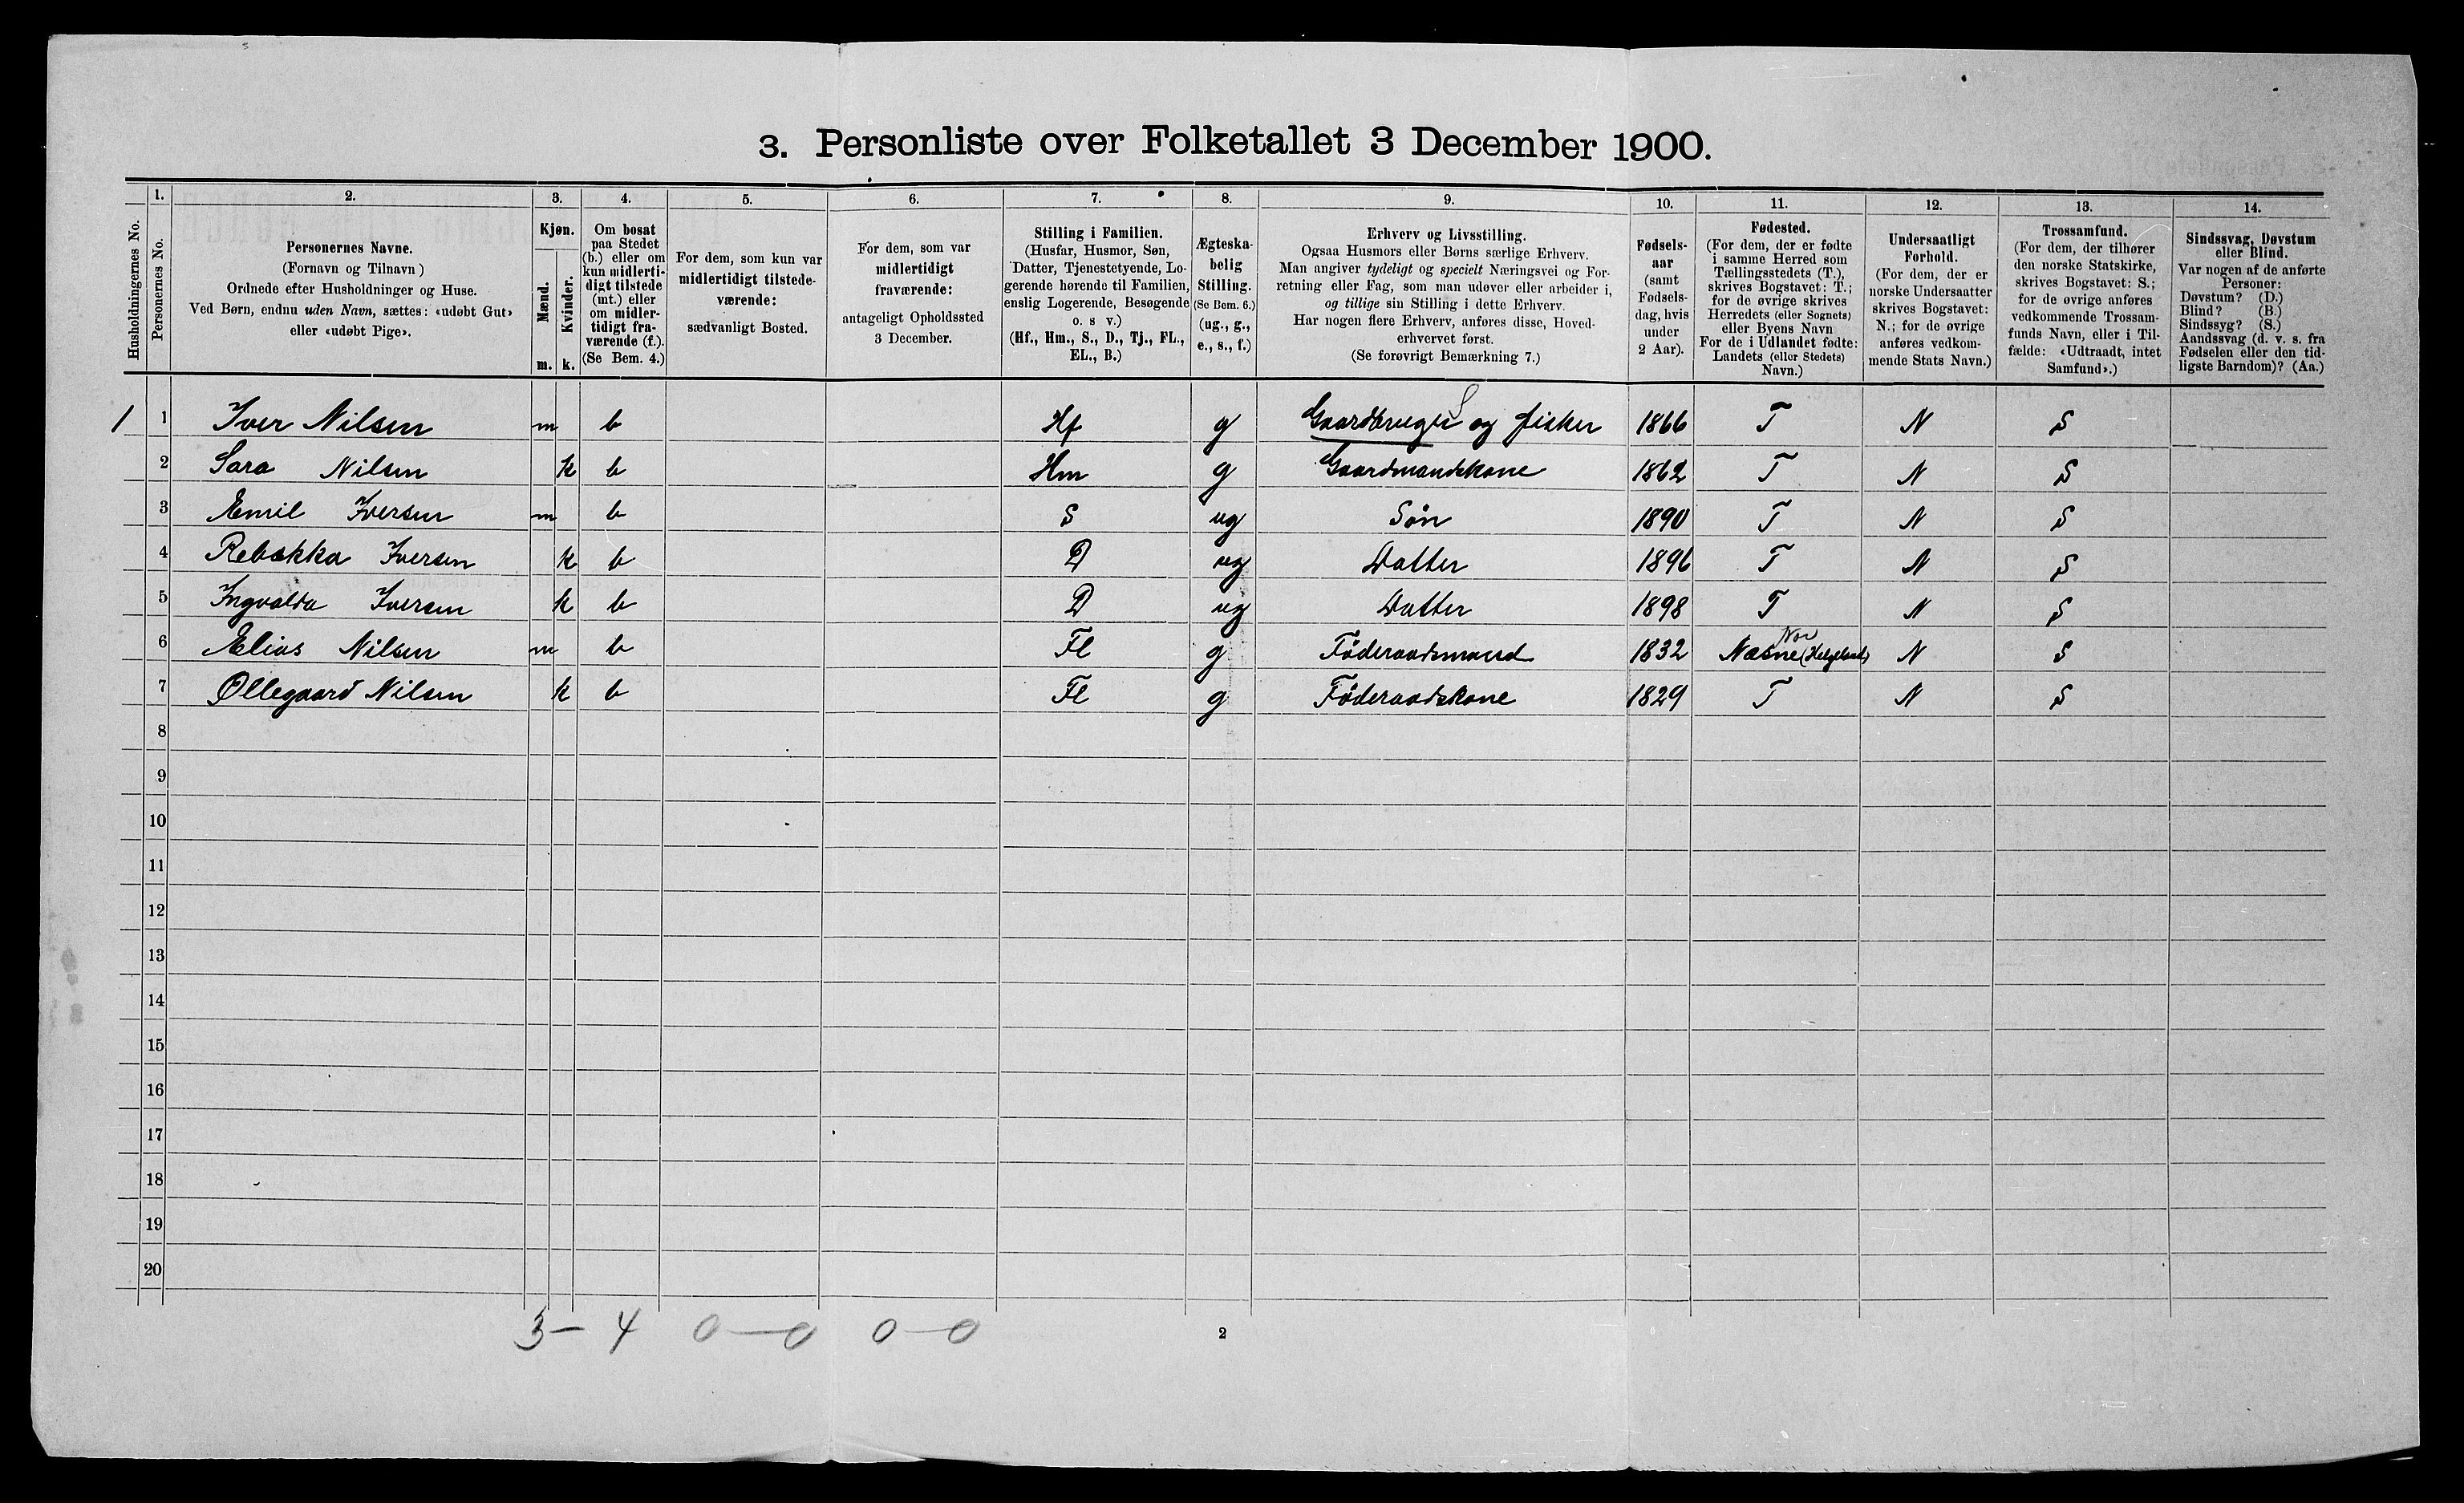 3. Personliste over Folketallet 3 December 1900.
Husholdningernes No.
1.
Personernes No.
2.
Personernes Navne.
(Fornavn og Tilnavn)
Ordnede efter Husholdninger og Huse.
Ved Børn, endnu uden Navn, sættes: «udøbt Gut»
eller «udøbt Pige».
3.
Kjøn.
Mænd.
Kvinder.
m. k.
4.
Om bosat
paa Stedet
(b.) eller om
kun midlerti-
digt tilstede
(mt.) eller
om midler-
tidigt fra-
værende (f.).
(Se Bem. 4.)
5.
For dem, som kun var
midlertidigt tilstede-
værende:
sædvanligt Bosted.
6.
For dem, som var
midlertidigt
fraværende:
antageligt Opholdssted
3 December.
7.
Stilling i Familien.
(Husfar, Husmor, Søn,
Datter, Tjenestetyende, Lo-
gerende hørende til Familien,
enslig Logerende, Besøgende
o. s v.)
(Hf., Hm., S., D., Tj., FL.,
EL., B.)
8.
Ægteska-
belig
Stilling.
(Se Bem. 6.)
(ug., g.,
e., s., f.)
9.
Erhverv og Livsstilling.
Ogsaa Husmors eller Børns særlige Erhverv.
Man angiver tydeligt og specielt Næringsvei og For-
retning eller Fag, som man udøver eller arbeider i,
og tillige sin Stilling i dette Erhverv.
Har nogen flere Erhverv, anføres disse, Hoved-
erhvervet først.
(Se forøvrigt Bemærkning 7.)
10.
Fødsels-
aar
(samt
Fødsels-
dag, hvis
under
2 Aar).
11.
Fødested.
(For dem, der er fødte
i samme Herred som
Tællingsstedets (T.),
skrives Bogstavet: T.;
for de øvrige skrives
Herredets (eller Sognets)
eller Byens Navn
For de i Udlandet fødte:
Landets (eller Stedets)
Navn.)
12.
Undersaatligt
Forhold.
(For dem, der er
norske Undersaatter
skrives Bogstavet:
N.; for de øvrige
anføres vedkom-
mende Stats Navn.)
13.
Trossamfund.
(For dem, der tilhører
den norske Statskirke,
skrives Bogstavet: S.;
for de øvrige anføres
vedkommende Trossam-
funds Navn, eller i Til-
fælde: «Udtraadt, intet
Samfund».)
14.
Sindssvag, Døvstum
eller Blind.
Var nogen af de anførte
Personer:
Døvstum? (D.)
Blind? (B.)
Sindssyg? (S.)
Aandssvag (d. v. s. fra
Fødselen eller den tid-
ligste Barndom)? (Aa.)
1 1 Iver Nilsen m b Hf g Gaardbruger og fisker 1866 T N S
2 Sara Nilsen k b Hm g Gaardmandskone 1862 T N S
3 Emil Iversen m b S ug Søn 1890 T N S
4 Rebekka Iversen k b D ug Datter 1896 T N S
5 Ingvalda Iversen k b D ug Datter 1898 T N S
Nor
6 Elias Nilsen m b Fl g Føderaadsmand 1832 Næsne (Helgeland) N S
7 Ollegaard Nilsen k b Fl g Føderaadskone 1829 T N S
8
9
10
11
12
13
14
15
16
17
18
19
20
3 - 4 0 - 0 0 - 0
2